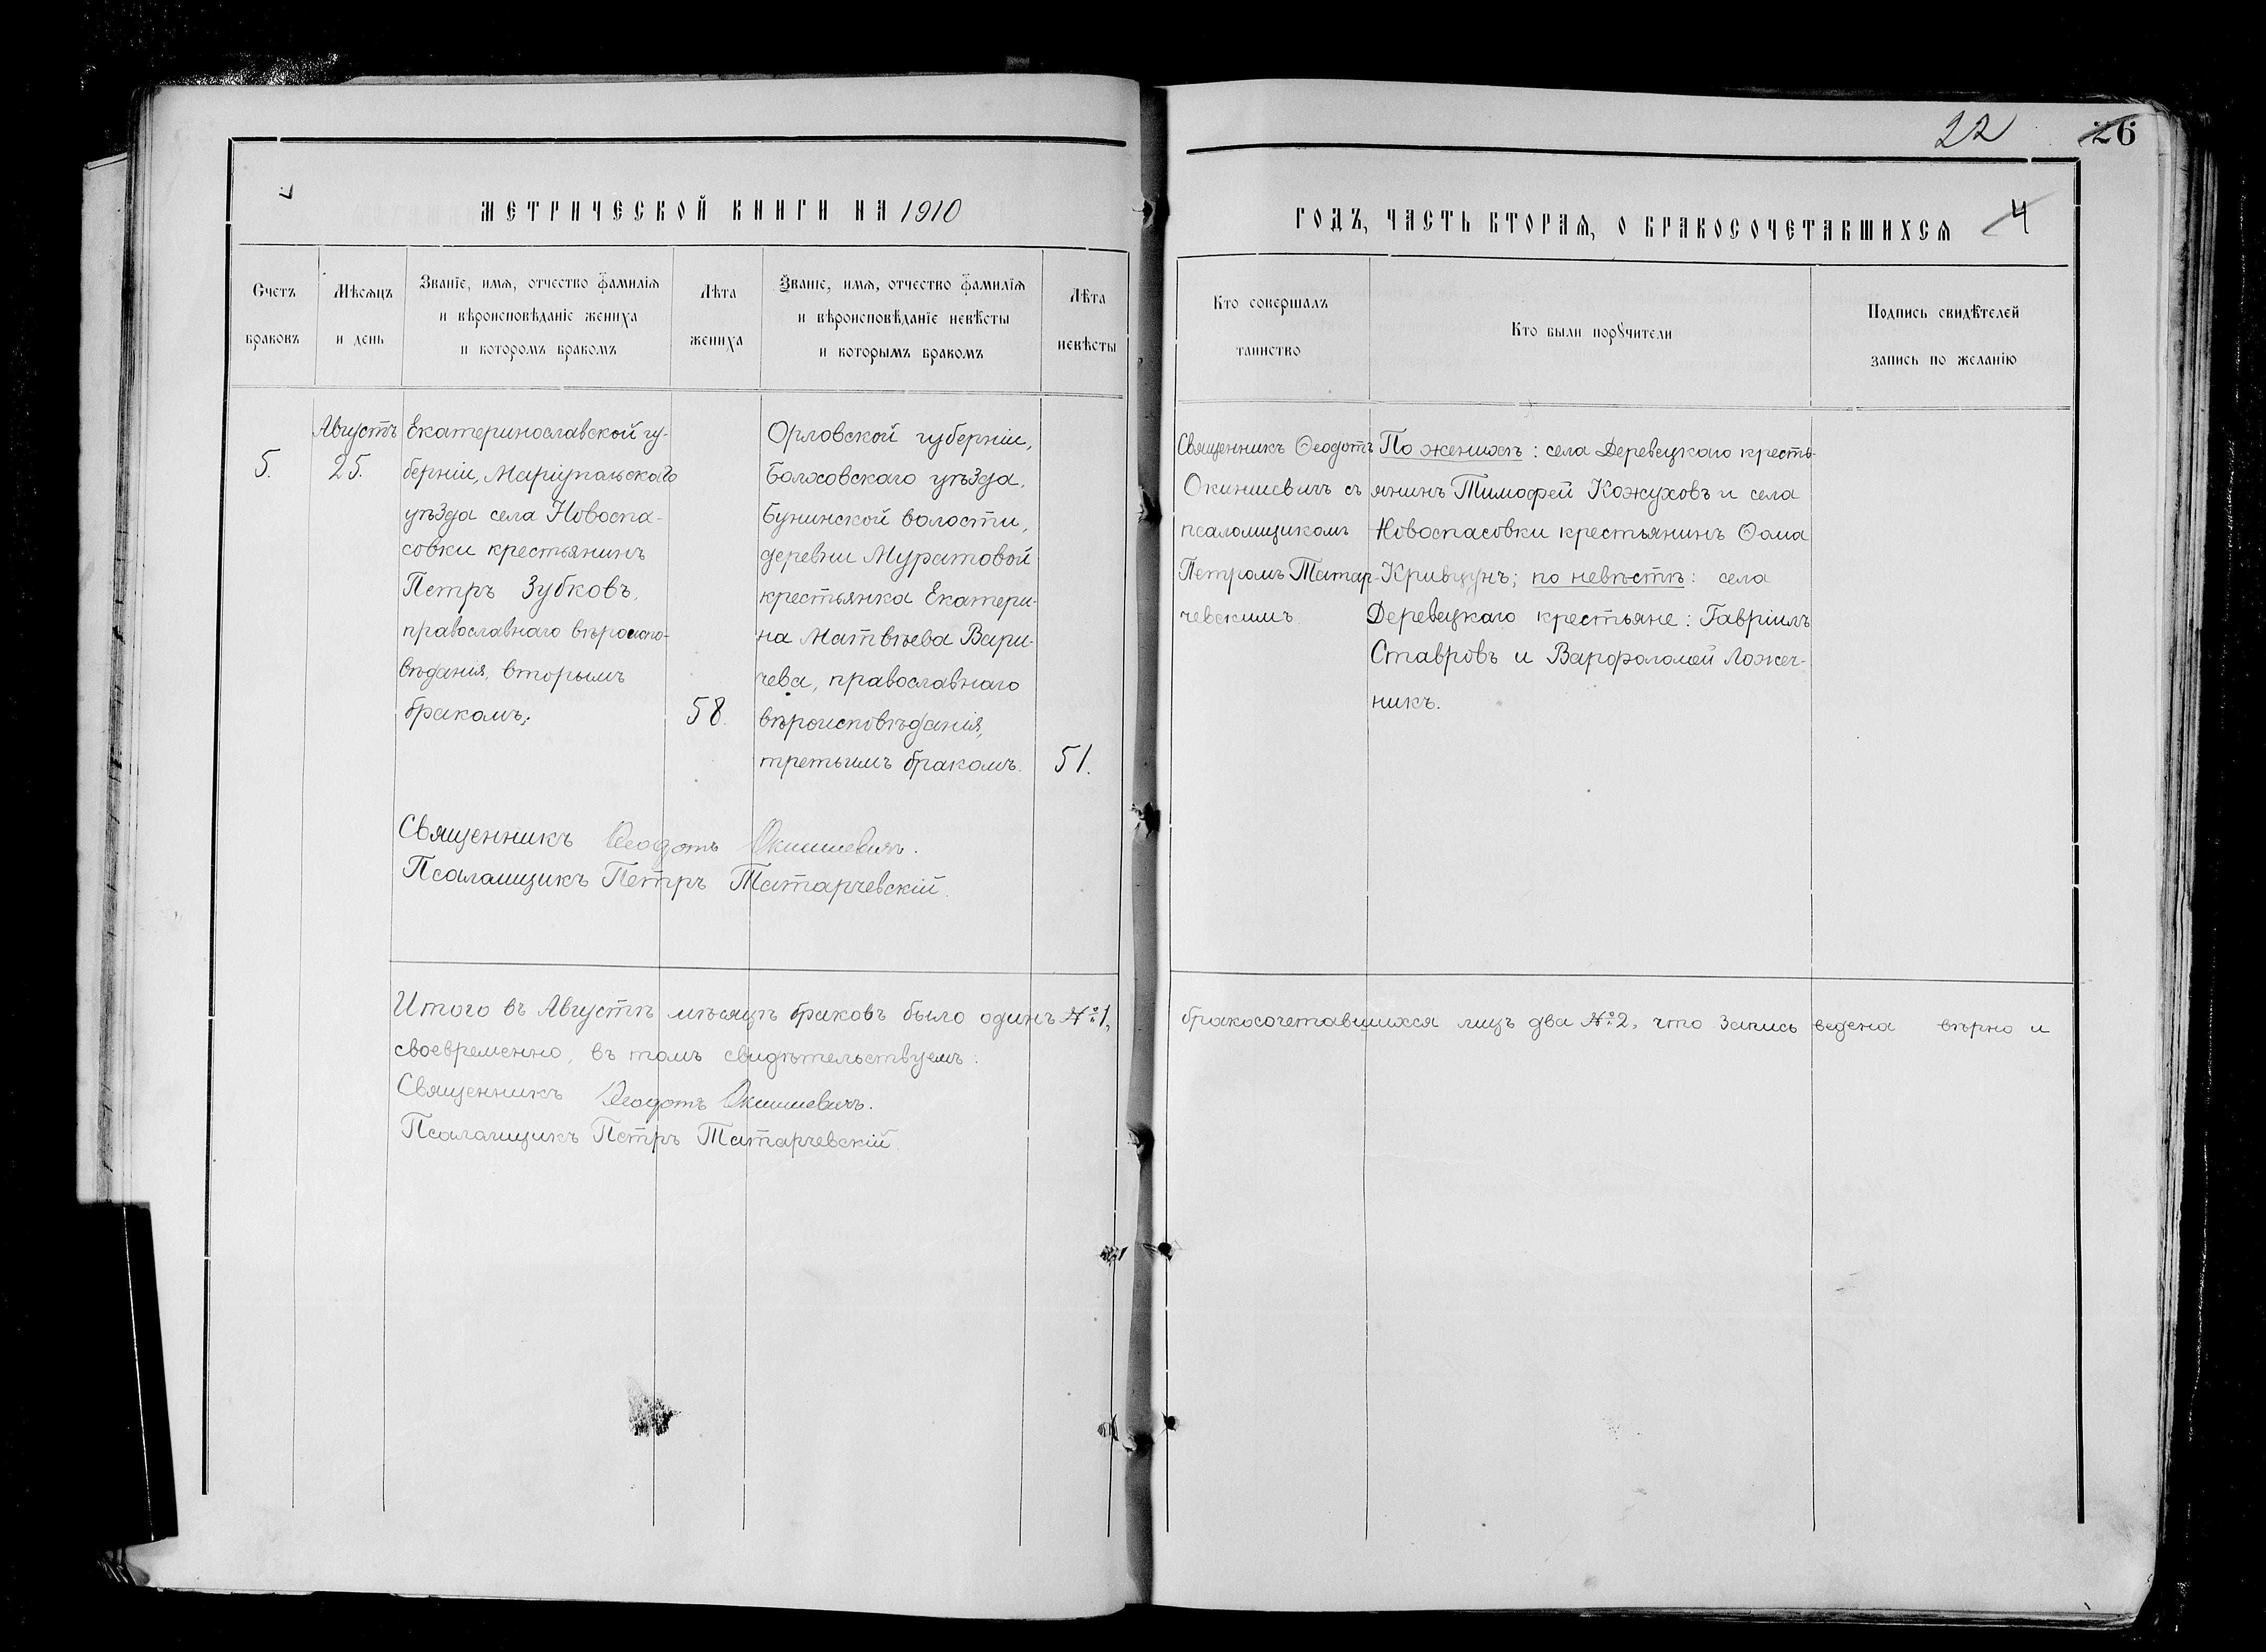 22
26
МЕТРИЧЕСКОЙ КНИГИ НА 1910
ГОДЪ, ЧАСТЬ ВТОРАЯ, О БРАКОСОЧЕТАВШИХСЯ
4
Счетъ
браковъ
Мѣсяцъ
и день
Званіе, имя, отчество фамилія
и вѣроисповѣданіе жениха
и которомъ бракомъ
Лѣта
жениха
Званіе, имя, отчество фамилія
и вѣроисповѣданіе невѣсты
и которымъ бракомъ
Лѣта
невѣсты
Кто совершалъ
таинство
Кто были порꙋчители
Подпись свидѣтелей
запись по желанію
5.
Августъ
25.
Екатеринославской гу-
берніи, Маріупольскаго
уѣзда села Новоспа-
совки крестьянинъ
Петръ Зубковъ,
православнаго вѣроиспо-
вѣданія, вторымъ
бракомъ;
58.
Орловской губерніи,
Болховскаго уѣзда,
Бунинской волости,
деревни Муратовой
крестьянка Екатери-
на Матвѣева Вари-
чева, православнаго
вѣроисповѣданія,
третьимъ бракомъ.
51.
Священникъ Ѳеодотъ
Окиншевичъ съ
псаломщикомъ
Петромъ Татар-
чевскимъ.
По женихѣ: села Деревецкаго кресть-
янинъ Тимофей Кожуховъ и села
Новоспасовки крестьянинъ Ѳома
Кривцунъ; по невѣстѣ: села
Деревецкаго крестьяне: Гавріилъ
Ставровъ и Варфоломей Ложеч-
никъ.
Священникъ Ѳеодотъ Окиншевичъ.
Псаломщикъ Петръ Татарчевскій.
Итого въ Августѣ мѣсяцѣ браковъ было одинъ №1, бракосочетавшихся лицъ два №2, что запись ведена вѣрно и
своевременно, въ томъ свидѣтельствуемъ:
Священникъ Ѳеодотъ Окиншевичъ.
Псаломщикъ Петръ Татарчевскій.